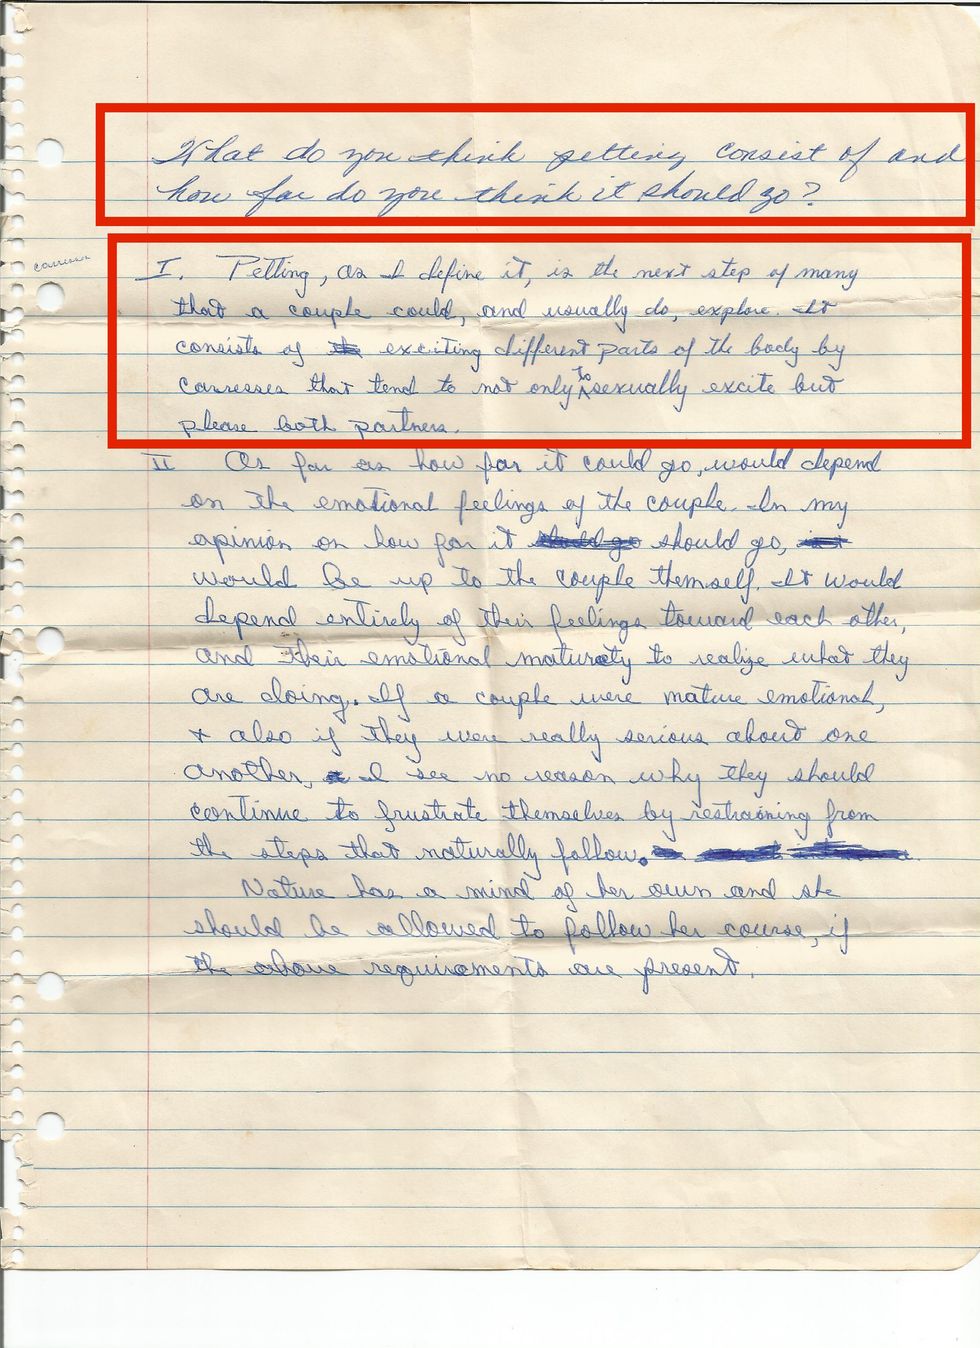 What do you think petting consist of and
how far do you think it should go?
caresses
I. Petting, as I define it, is the next step of many
that a couple could, and usually do, explore. It
consists of the exciting different parts of the body by
carresses that tend to not only to sexually excite but
please both partners.
II As far as how far it could go, would depend
on the emotional feelings of the couple. In my
opinion on how far it should go should go,
would be up to the couple themself. It would
depend entirely of their feelings toward each other,
and their emotional maturety to realize what they
are doing. If a couple were mature emotional,
+ also if they were really serious about one
another, I see no reason why they should
continue to frustrate themselves by restraining from
the steps that naturally follow.
Nature has a mind of her own and she
should be allowed to follow her course, if
the above requirements are present.